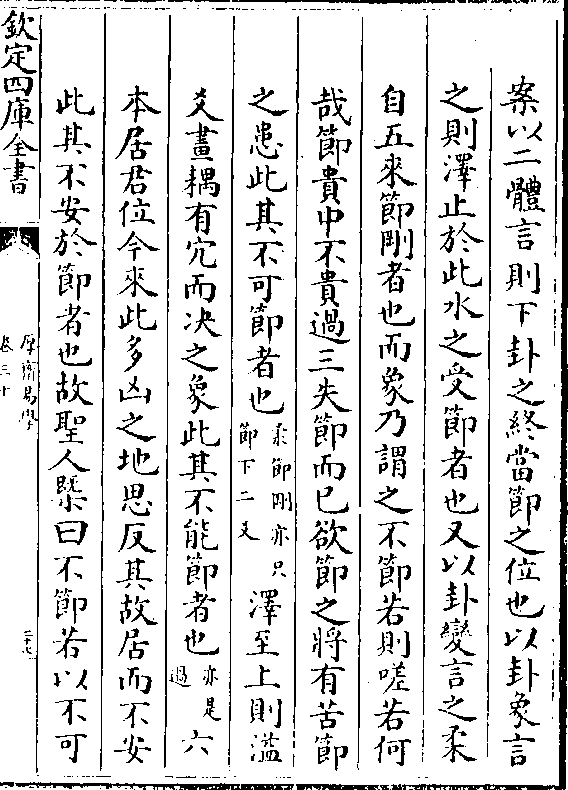 案以二體言則下卦之終當節之位也以卦象言
之則澤止於此水之受節者也又以卦變言之柔
自五來節剛者也而象乃謂之不節若則嗟若何
哉節貴中不貴過三失節而已欲節之將有苦節
之患此其不可節者也
柔節剛亦只
節下二爻
澤至上則滥
爻畫耦有穴而决之象此其不能節者也
亦是
過
六
本居君位今來此多凶之地思反其故居而不安
此其不安於節者也故聖人槩曰不節若以不可
欽定四庫全書
厚齋易學
卷三十
三七